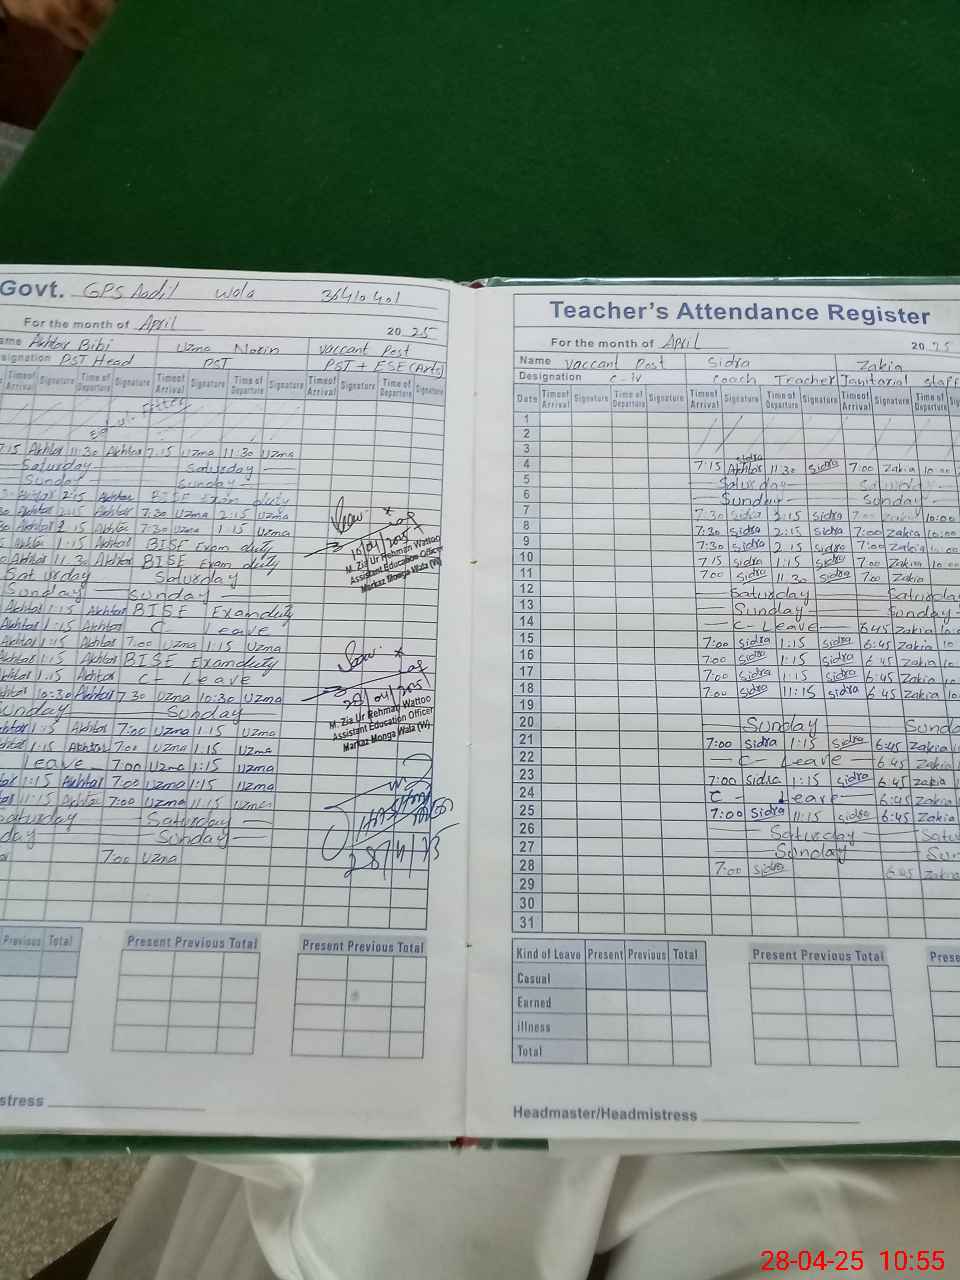 Govt. GPS Aadil Wala 36410401
For the month of April 20 25
ame Akhtar Bibi Uzma Norin vaccant Post
signation PST Head PST PST + ESE (Arts)
Time of Arrival Signature Time of Departure Signature Time of Arrival Signature Time of Departure Signature Time of Arrival Signature Time of Departure Signature
7:15 Akhtar 11:30 Akhtar 7:15 Uzma 11:30 Uzma
Saturday Saturday
Sunday Sunday
Akhtar 2:15 Akhtar BISE Exam duty
Akhtar 2:15 Akhtar 7:30 Uzma 2:15 Uzma
Akhtar 2:15 Akhtar 7:30 Uzma 1:15 Uzma
Akhtar 1:15 Akhtar BISE Exam duty
Akhtar 11:30 Akhtar BISE Exam duty
Saturday Saturday
Sunday Sunday
Akhtar 1:15 Akhtar BISE Exam duty
Akhtar 1:15 Akhtar C- Leave
Akhtar 1:15 Akhtar 7:00 Uzma 1:15 Uzma
Akhtar 1:15 Akhtar BISE Exam duty
Akhtar 1:15 Akhtar C- Leave
10:30 Akhtar 7:30 Uzma 10:30 Uzma
unday Sunday
1:15 Akhtar 7:00 Uzma 1:15 Uzma
1:15 Akhtar 7:00 Uzma 1:15 Uzma
Leave 7:00 Uzma 1:15 Uzma
1:15 Akhtar 7:00 Uzma 1:15 Uzma
11:15 Akhtar 7:00 Uzma 11:15 Uzma
Saturday Saturday
day Sunday
7:00 Uzma
10/04/2025
M. Zia Ur Rehman Wattoo
Assistant Education Officer
Markaz Monga Wala (W)
M. Zia Ur Rehman Wattoo
Assistant Education Officer
Markaz Monga Wala (W)
Previous Total
Present Previous Total
Present Previous Total
stress
Teacher's Attendance Register
For the month of April 20 25
Name vaccant Post Sidra Zakia
Designation C-IV Coach Teacher Janitoral staff
Date Time of Arrival Signature Time of Departure Signature Time of Arrival Signature Time of Departure Signature Time of Arrival Signature Time of Departure
1
2
3
4 7:15 Sidra Akhtar 11:30 Sidra 7:00 Zakia 10:00
5 Saturday Saturday
6 Sunday Sunday
7 7:30 Sidra 2:15 Sidra 7:00 Zakia 10:00
8 7:30 Sidra 2:15 Sidra 7:00 Zakia 10:00
9 7:30 Sidra 2:15 Sidra 7:00 Zakia 10:00
10 7:15 Sidra 1:15 Sidra 7:00 Zakia 10:00
11 7:00 Sidra 11:30 Sidra 7:00 Zakia
12 Saturday Saturday
13 Sunday Sunday
14 C- Leave 6:45 Zakia
15 7:00 Sidra 1:15 Sidra 6:45 Zakia
16 7:00 Sidra 1:15 Sidra 6:45 Zakia
17 7:00 Sidra 1:15 Sidra 6:45 Zakia
18 7:00 Sidra 11:15 Sidra 6:45 Zakia
19
20 Sunday Sunda
21 7:00 Sidra 1:15 Sidra 6:45 Zakia
22 C- Leave 6:45 Zakia
23 7:00 Sidra 1:15 Sidra 6:45 Zakia
24 C- Leave 6:45 Zakia
25 7:00 Sidra 11:15 Sidra 6:45 Zakia
26 Saturday Satu
27 Sunday Sun
28 7:00 Sidra 6:45 Zakia
29
30
31
Kind of Leave Present Previous Total
Casual
Earned
illness
Total
Present Previous Total
Prese
Headmaster/Headmistress
28-04-25 10:55